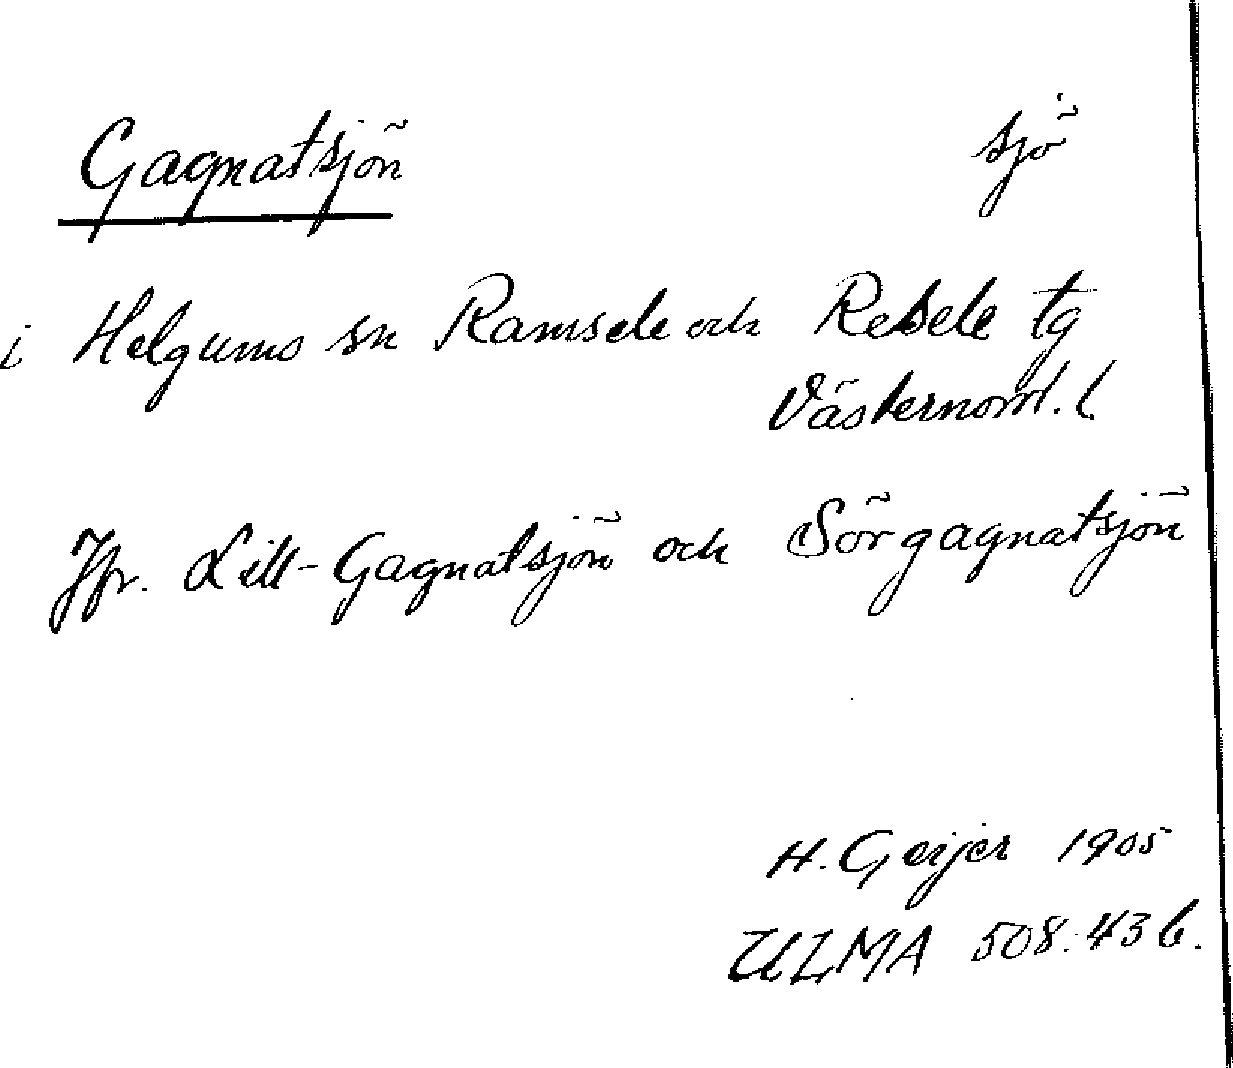 Gagnatsjön sjö
i Helgums sn Ramsele och Resele tg
Västernorrl. l.
Jfr. Lill-Gagnatsjön och Sörgagnatsjön
H. Geijer 1905
ULMA 508:43 b.